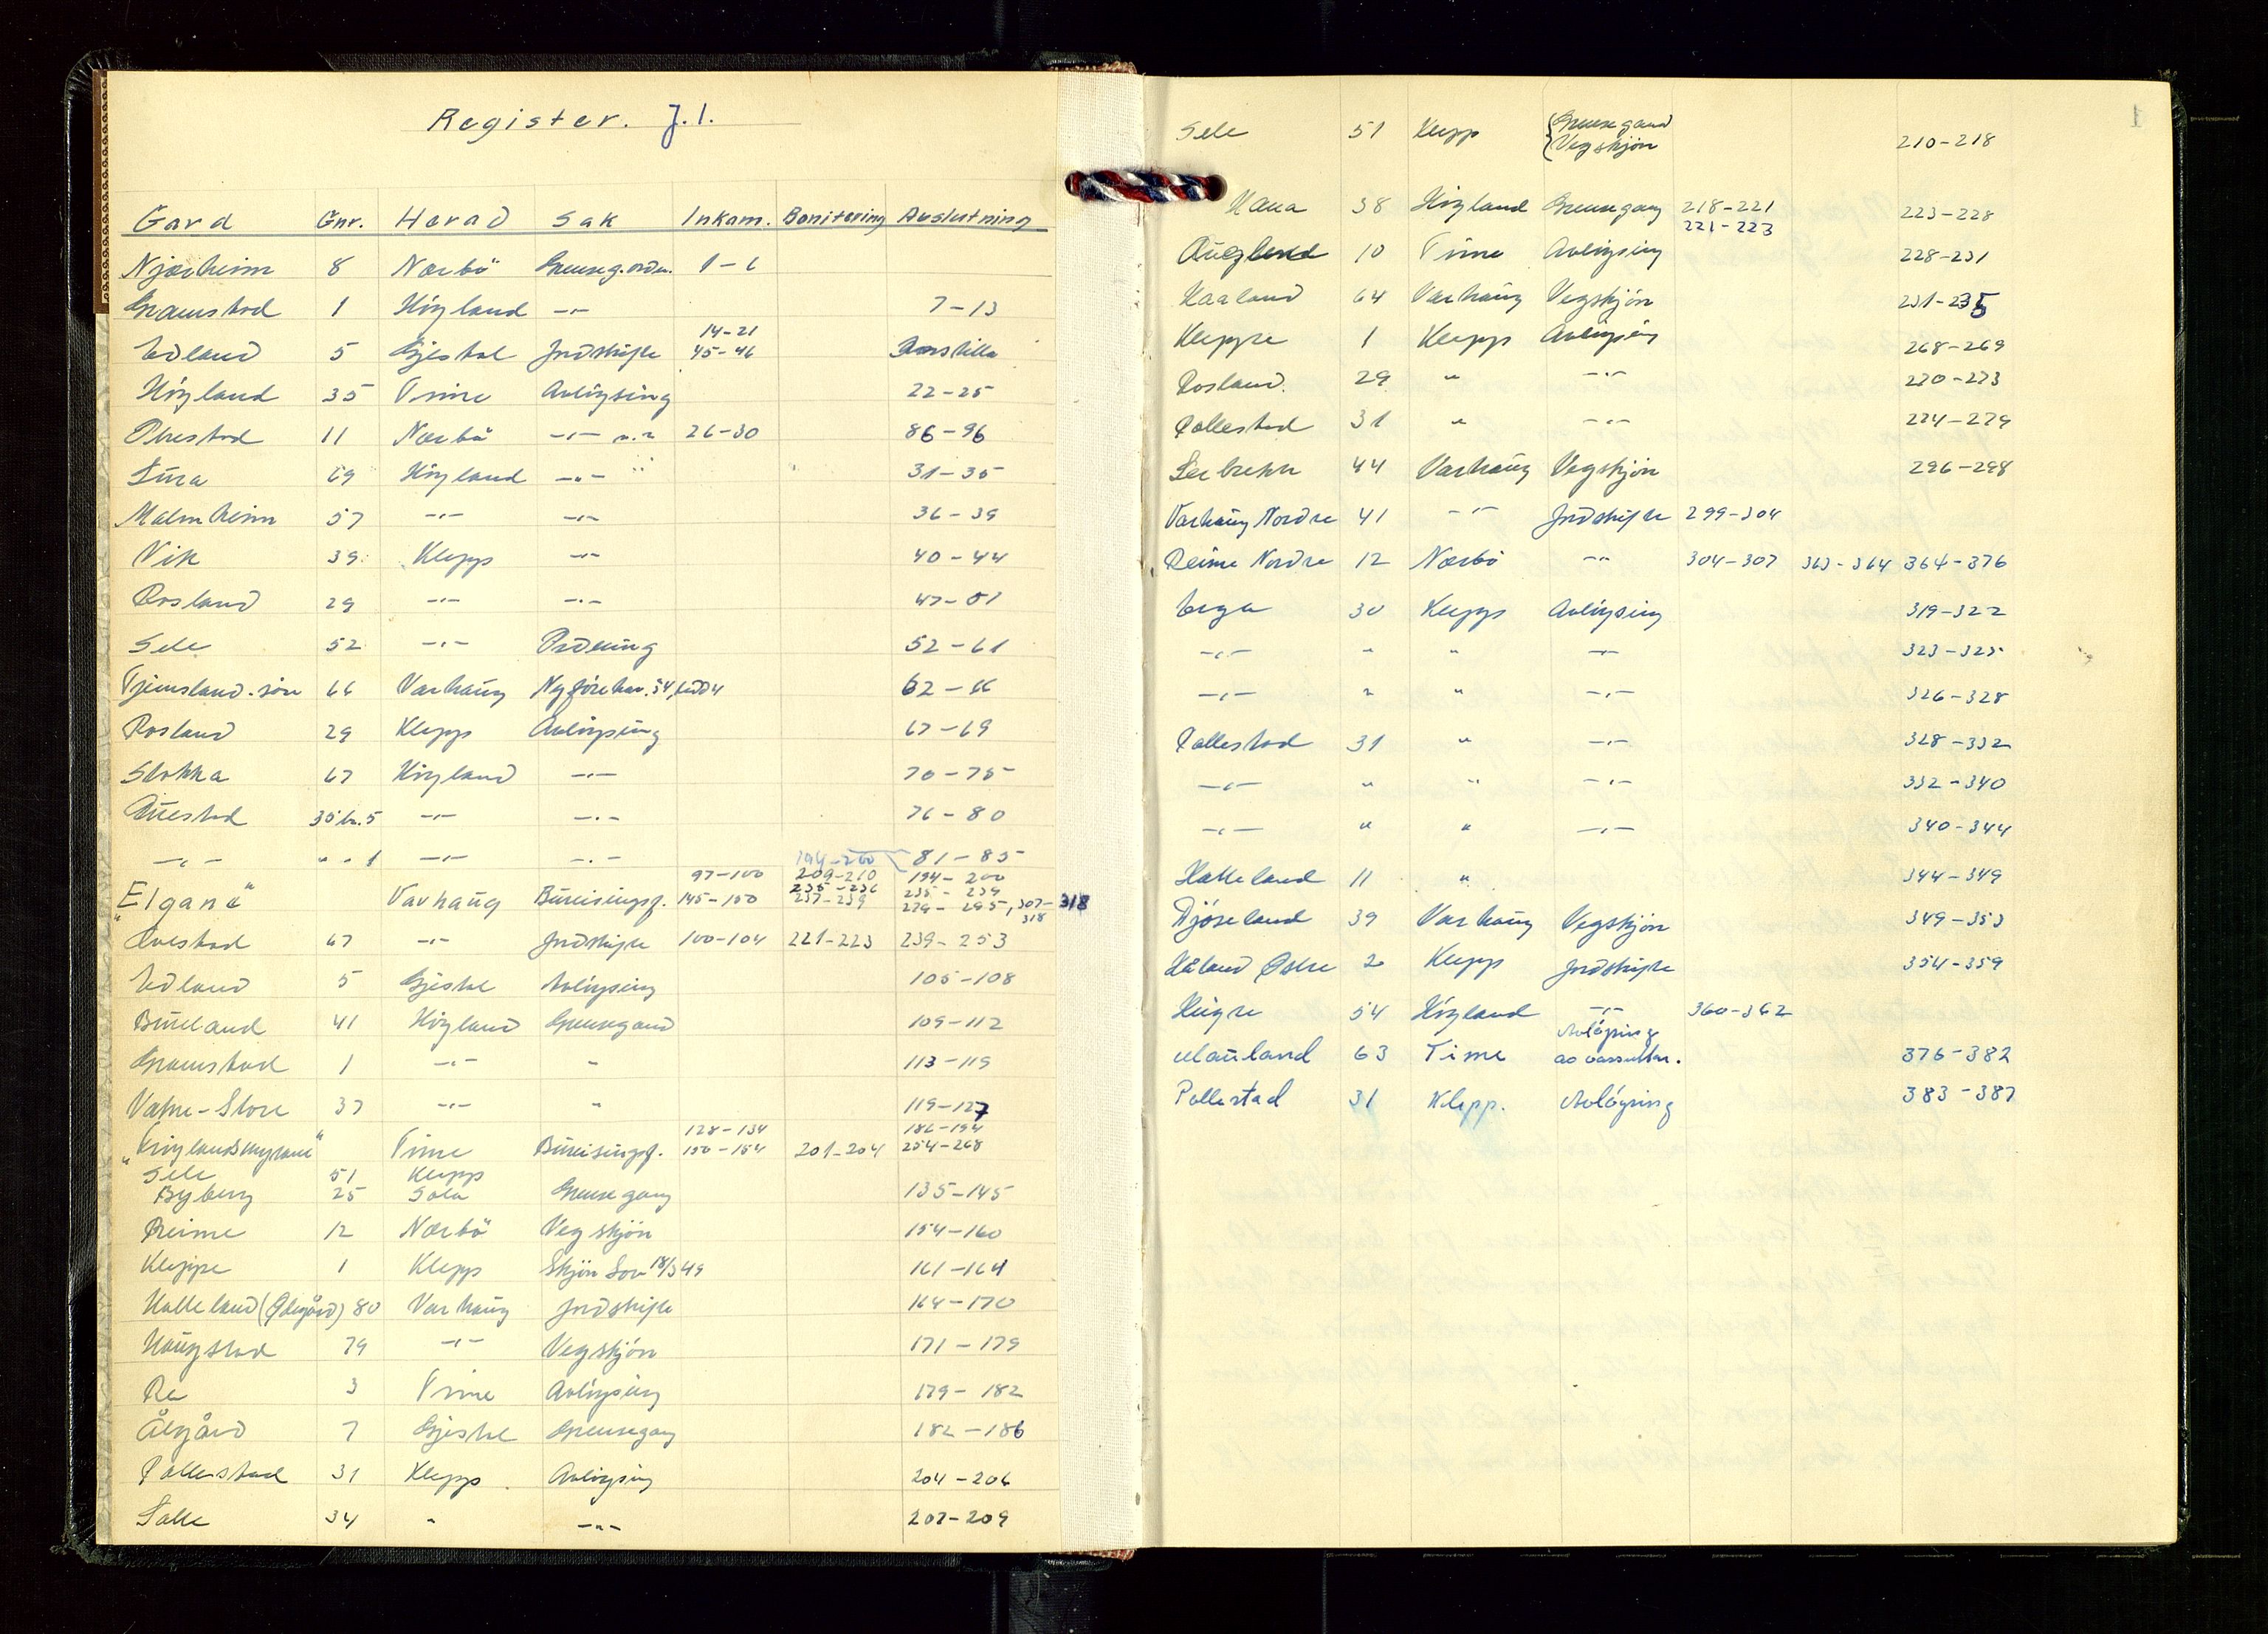 Register. J.1.
Gard Gnr. Herad Sak Inkam. Bonitering Avslutning
Njærheim 8 Nærbö Grenseg.ordn. 1-6
Gramstad 1 Höyland -"- 7-13
Edland 5 Gjestal Jordskifte 14-21 45-46
Höyland 35 Time Avlöysing 22-25
Obrestad 11 Nærbö -"- 26-30 86-96
Lura 69 Höyland -"- 31-35
Malmheim 57 -"- -"- 36-39
Vik 39 Klepp -"- 40-44
Rosland 29 -"- -"- 47-51
Sele 52 -"- Ordning 52-61
Tjemsland. sön 66 Varhaug 62-66
Rosland 29 Klepp Avlöysing 67-69
Stokka 67 Höyland -"- 70-75
Auestad 35 br. 5 -"- -"- 76-80
-"- " " 1 -"- -"- 81-85
"Elgane" Varhaug Bureisingsf. 97-100 145-150 194-200 209-210 235-236 237-239 194-200 235-239 279-295, 307-318 318
Auestad 67 -"- Jordskifte 100-104 221-223 239-253
Edland 5 Gjestal Avlöysing 105-108
Bueland 41 Höyland Grensegand 109-112
Gramstad 1 -"- " 113-119
Vatne-Store 37 -"- " 119-127
"Höylandsmyrane" Time Bureisingsf. 128-134 150-154 201-204 186-194 254-268
Sele 51 Klepp
Byberg 25 Sola Grensegang 135-145
Reime 12 Nærbö Vegskjön 154-160
Kleppe 1 Klepp Skjön Lov 18/3 49 161-164
Halleland (Ødegård) 80 Varhaug Jordskifte 164-170
Haugstad 79 -"- Vegskjön 171-179
Re 3 Time Avlöysing 179-182
Ålgård 7 Gjestal Grensegang 182-186
Pollestad 31 Klepp Avlöysing 204-206
Salle 34 " -"- 207-209
Sele 51 Klepp {Grensegand Vegskjön 210-218
Hana 38 Höyland Grensegang 218-221 221-223 223-228
Auglend 10 Time Avlöysing 228-231
Haaland 64 Varhaug Vegskjön 231-235
Kleppe 1 Klepp Avlöysing 268-269
Rosland. 29 " -"- 270-273
Pollestad 31 " -"- 274-279
Lerbrekk 44 Varhaug Vegskjön 296-298
Varhaug Nordre 41 -"- Jordskifte 299-304
Reime Nordre 12 Nærbö -"- 304-307 363-364 364-376
Erga 30 Klepp Avlöysing 319-322
-"- " " -"- 323-325
-"- " " -"- 326-328
Pollestad 31 " -"- 328-332
-"- " " -"- 332-340
-"- " " -"- 340-344
Halleland 11 " 344-349
Djöseland 39 Varhaug Vegskjön 349-353
Håland Østre 2 Klepp Jordskifte 354-359
Hugre 54 Höyland -"- 360-362
Mauland 63 Time Avlöysing av 376-382
Pollestad 31 Klepp. Avlöysing 383-387
1